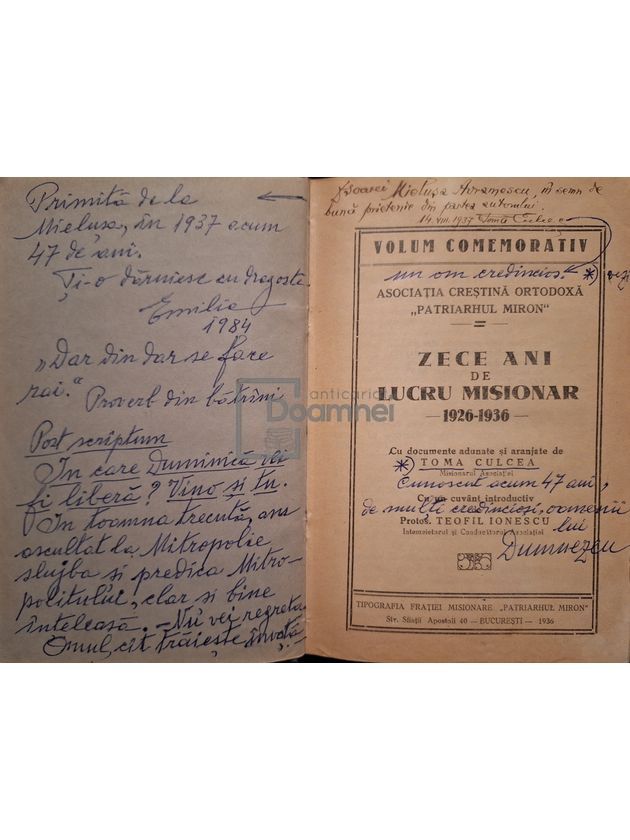 Primită de la
Mielușa, în 1937 acum
47 de ani.
Ți-o dăruiesc cu dragoste
Emilia
1984
„Dar din dar se face
rai." Proverb din bătrîni
Post scriptum
În care Duminică vei
fi liberă? Vino și tu.
În toamna trecută, am
ascultat la Mitropolie
slujba și predica Mitro-
politului, clar și bine
înțeleasă. - Nu vei regreta
Omul, cît trăiește învață
Dșoarei Mielușa Avramescu, în semn de
bună prietenie din partea autorului.
14. VIII. 1937 Toma Culcea
VOLUM COMEMORATIV
un om credincios *) vezi
ASOCIAȚIA CREȘTINĂ ORTODOXĂ
„PATRIARHUL MIRON"
ZECE ANI
DE
LUCRU MISIONAR
1926-1936
anticariat
Doamnei
Cu documente adunate și aranjate de
*) TOMA CULCEA
Misionarul Asociației
Cunoscut acum 47 ani,
Cu un cuvânt introductiv
de mulți credincioși, oamenii
Protos. TEOFIL IONESCU
lui
Întemeietorul și Conducătorul Asociației
Dumnezeu
TIPOGRAFIA FRAȚIEI MISIONARE „PATRIARHUL MIRON"
Str. Sfinții Apostoli 40 — BUCUREȘTI — 1936